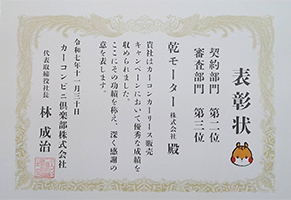 表彰状
契約部門 第二位
審査部門 第三位
乾モーター 株式会社 殿
貴社はカーコンカーリース販売
キャンペーンにおいて優秀な成績を
収められました。
ここにその功績を称え、深く感謝の
意を表します。
令和七年十一月三十日
カーコンビニ倶楽部株式会社
代表取締役社長 林 成治